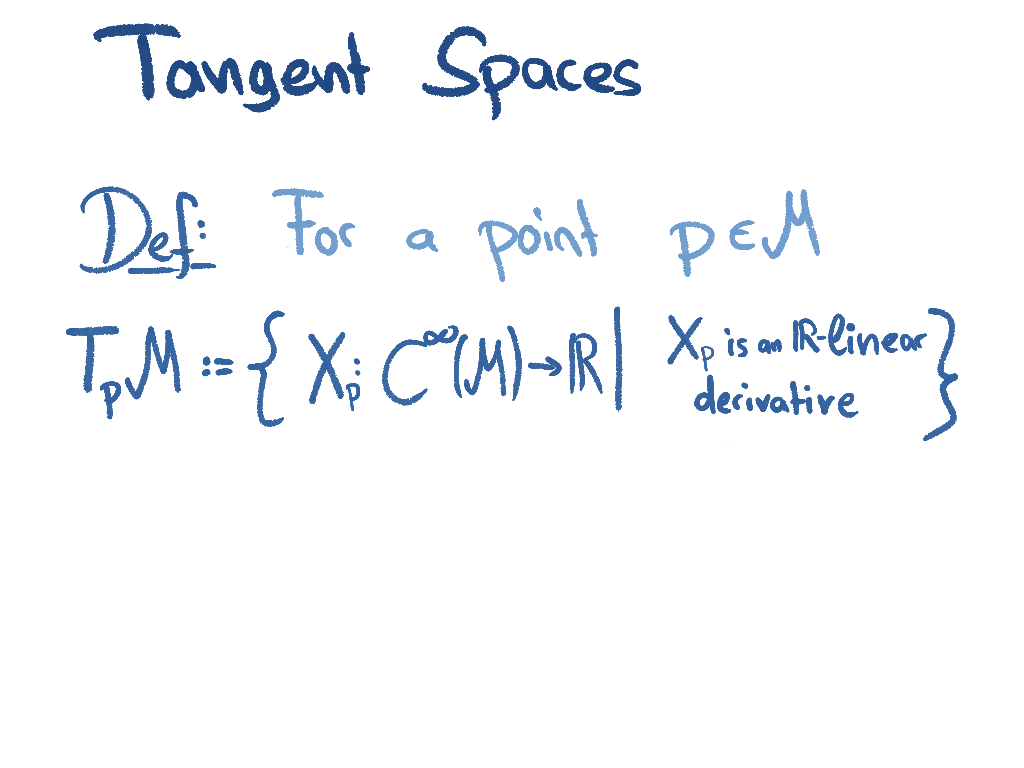 Tangent Spaces
Def: For a point p ∈ M
TₚM := { Xₚ: C^∞(M) → ℝ | Xₚ is an ℝ-linear derivative }